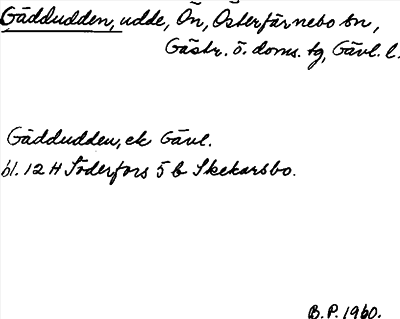 Gäddudden, udde, Ön, Österfärnebo sn,
Gästr. ö. doms. tg, Gävl. l.
Gäddudden, ek Gävl.
bl. 12 H Söderfors 5 b Skekarsbo.
B.P. 1960.